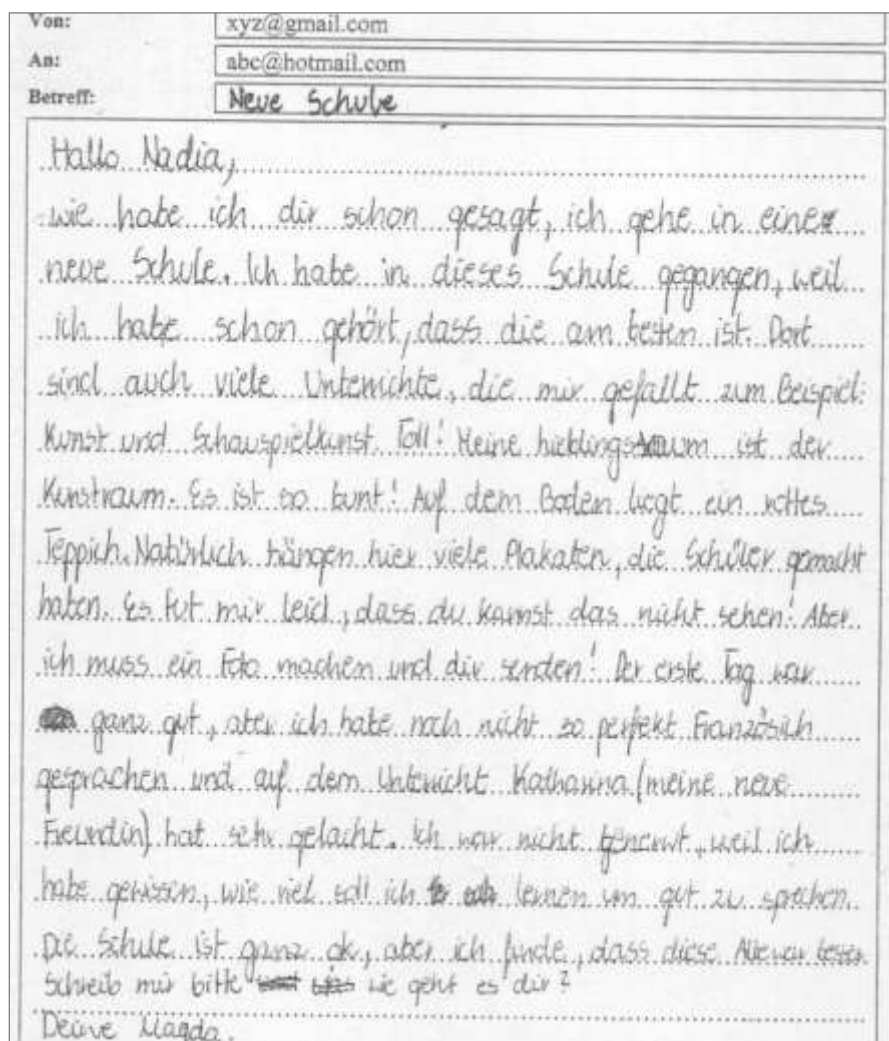 Von: xyz@gmail.com
An: abc@hotmail.com
Betreff: Neue Schule
Hallo Nadia,
wie habe ich dir schon gesagt, ich gehe in eine
neue Schule. Ich habe in dieses Schule gegangen, weil
ich habe schon gehört, dass die am besten ist. Dort
sind auch viele Unterrichte, die mir gefallt zum Beispiel:
Kunst und Schauspielkunst. Toll! Meine Lieblingsraum ist der
Kunstraum. Es ist so bunt! Auf dem Boden liegt ein rottes
Teppich. Natürlich hängen hier viele Plakaten, die Schüler gemacht
haben. Es tut mir leid, dass du kannst das nicht sehen! Aber
ich muss ein Foto machen und dir senden! Der erste Tag war
ganz gut, aber ich habe noch nicht so perfekt Französich
gesprachen und auf dem Unterricht Katharina (meine neue
Freundin) hat sehr gelacht. Ich war nicht genervt, weil ich
habe gewissen, wie viel soll ich lernen um gut zu sprechen.
Die Schule ist ganz ok, aber ich finde, dass diese Alte war besser
Schreib mir bitte wie geht es dir?
Deine Magda.